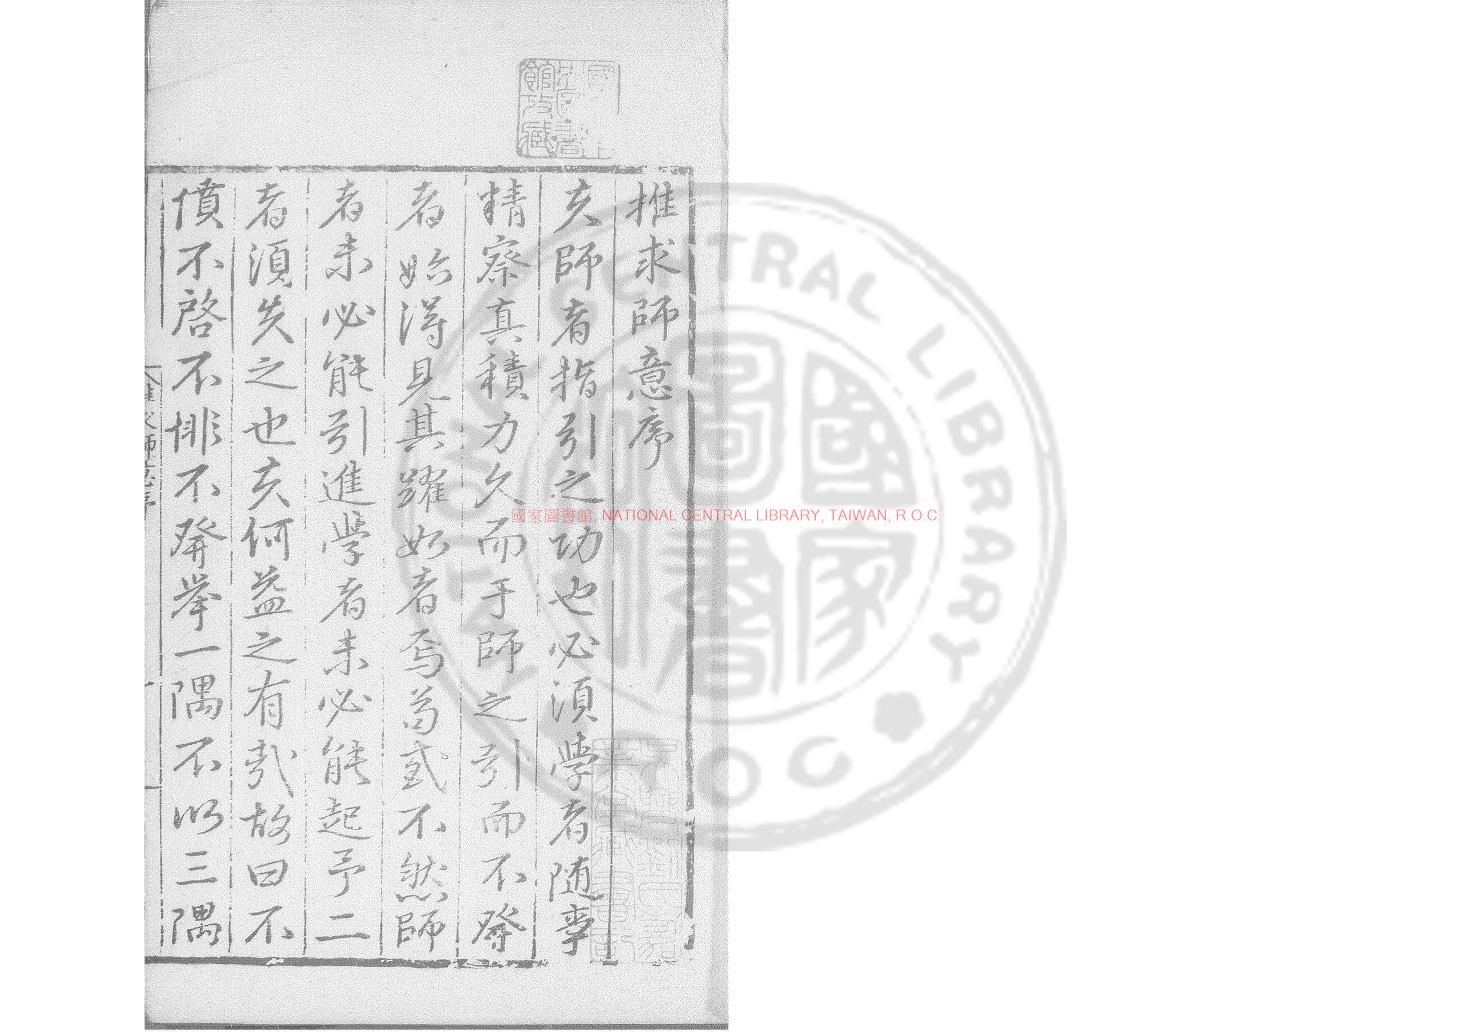 推求師意序
夫師者指引之功也必須學者随事
精察真積力久而于師之引而不發
者始得見其躍如者焉苟或不然師
者未必能引進學者未必能起予二
者須失之也夫何益之有哉故曰不
憤不啓不悱不發舉一隅不以三隅
推求師意序
國家圖書館, NATIONAL CENTRAL LIBRARY, TAIWAN, R.O.C.
NATIONAL CENTRAL LIBRARY
R.O.C.
國家圖書